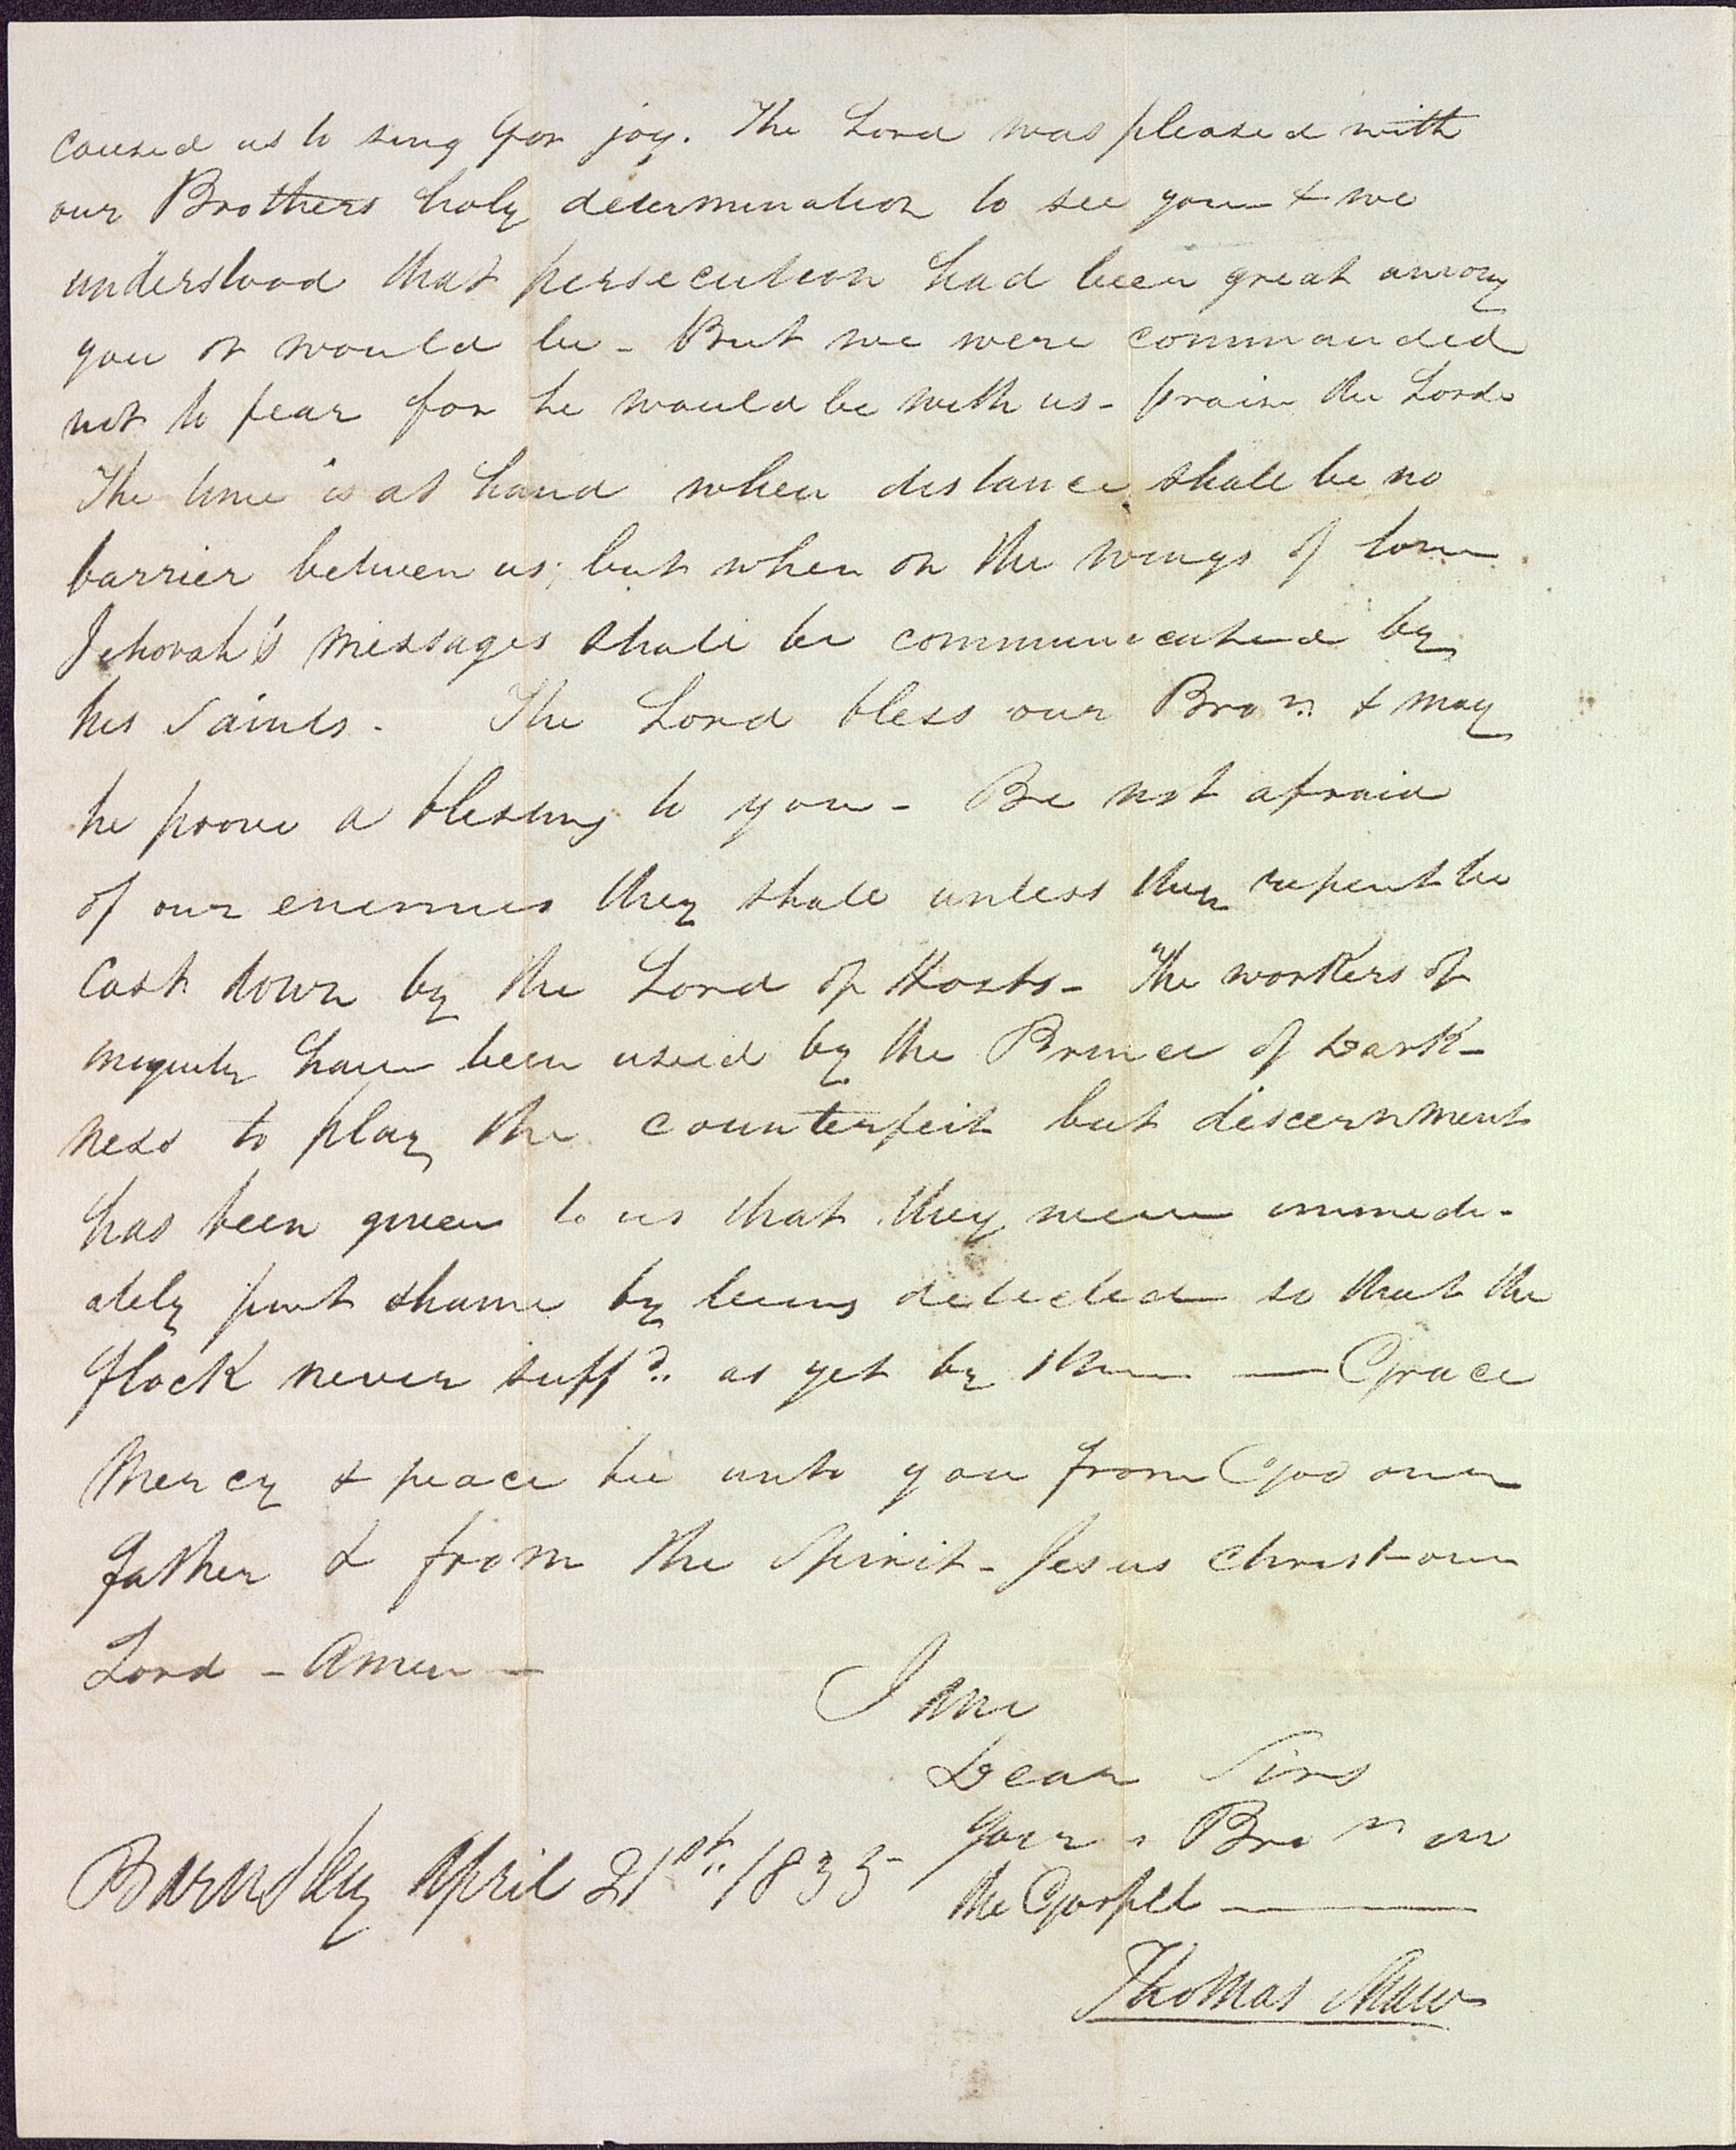 caused us to sing for joy. The Lord was pleased with
our Brothers holy determination to see you & we
understood that persecution had been great among
you or would be - But we were commanded
not to fear for he would be with us - praise the Lord
The time is at hand when distance shall be no
barrier between us; but when on the wings of love
Jehovah's messages shall be communicated by
his Saints - The Lord bless our Bror. & may
he prove a blessing to you - Be not afraid
of our enemies they shall unless they repent be
Cast down by the Lord of Hosts - The workers of
iniquity have been used by the Prince of Dark-
ness to play the counterfeit but discernment
has been given to us that they were immedi-
ately put shame by being detected so that the
flock never suffd. as yet by them — Grace
Mercy & peace be unto you from God our
father & from the Spirit - Jesus Christ our
Lord - Amen -
I am
Dear Sirs
Your Bror in
the Gospel —
Barnsley April 21st. 1835
Thomas Shaw